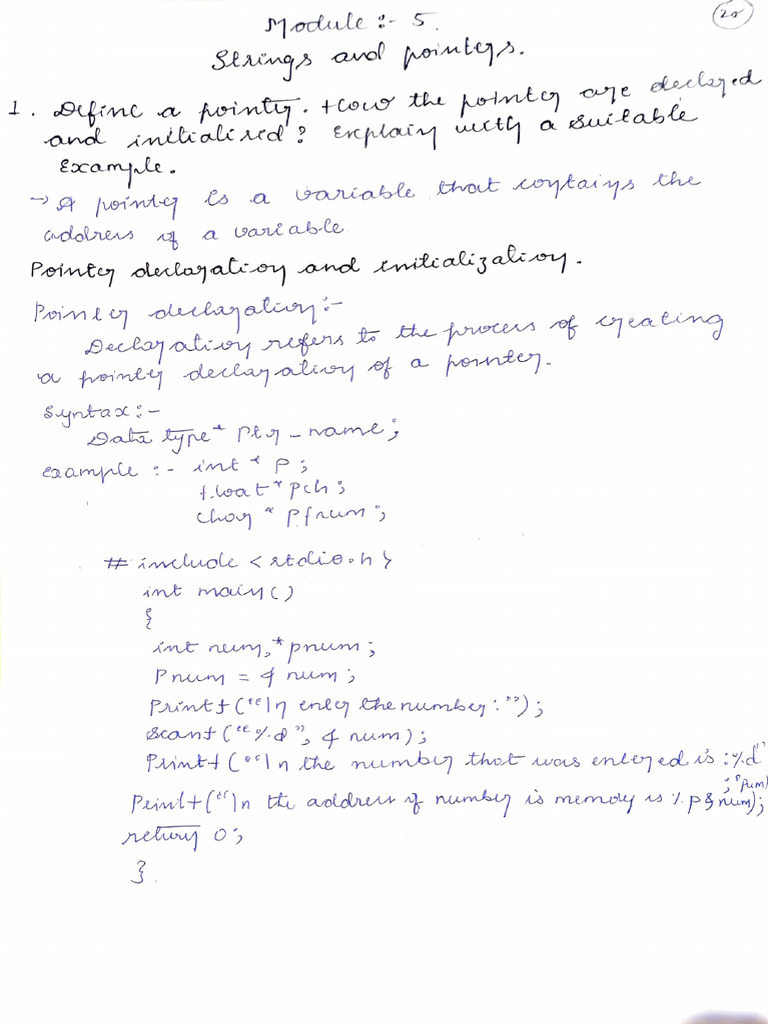 20
Module :- 5.
Strings and pointers.
1. Define a pointer. How the pointer are declared
and initialised? Explain with a suitable
Example.
→ A pointer is a variable that contains the
address of a variable
Pointer declaration and initialization.
Pointer declaration:-
Declaration refers to the process of creating
a pointer declaration of a pointer.
Syntax:-
Data type* Ptr_name;
example :- int * p;
float * pch;
char * pfnum;
# include <stdio.h>
int main()
{
int num,*pnum;
Pnum = & num;
Printf("\n enter the number:");
Scanf("%d", & num);
Printf("\n the number that was entered is :%d"
; *pnum)
Printf("\n the address of number is memory is %p & num);
return 0;
}.